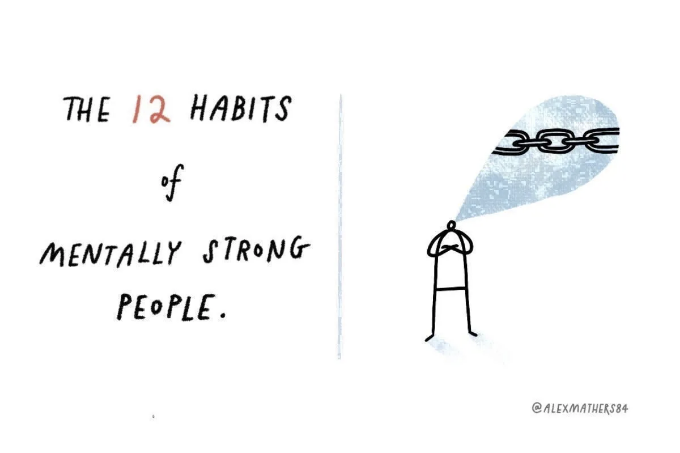 THE 12 HABITS
of
MENTALLY STRONG
PEOPLE.
@ALEXMATHERS84